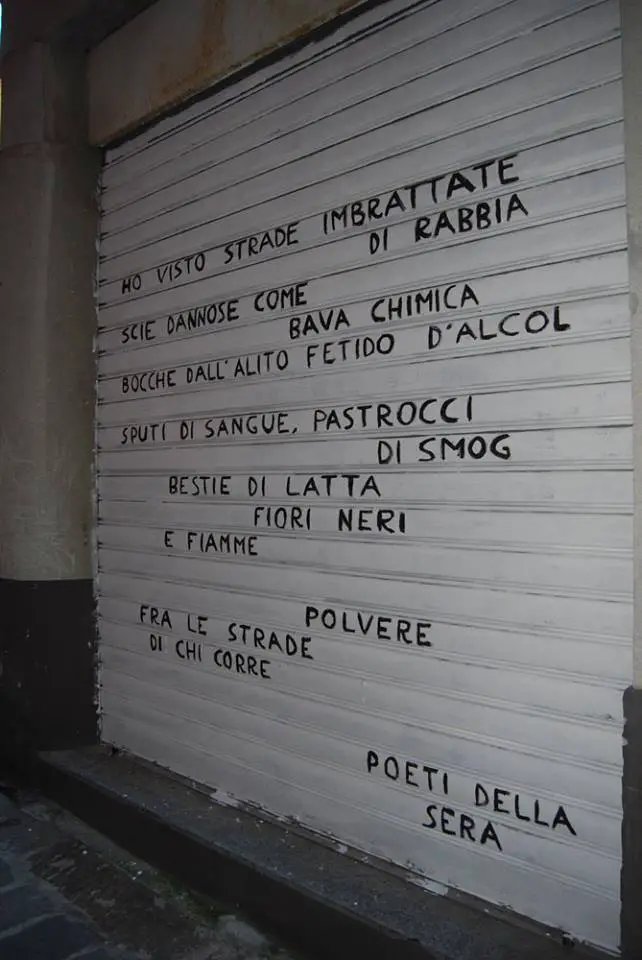 HO VISTO STRADE IMBRATTATE
DI RABBIA
SCIE DANNOSE COME
BAVA CHIMICA
BOCCHE DALL'ALITO FETIDO D'ALCOL
SPUTI DI SANGUE, PASTROCCI
DI SMOG
BESTIE DI LATTA
FIORI NERI
E FIAMME
POLVERE
FRA LE STRADE
DI CHI CORRE
POETI DELLA
SERA